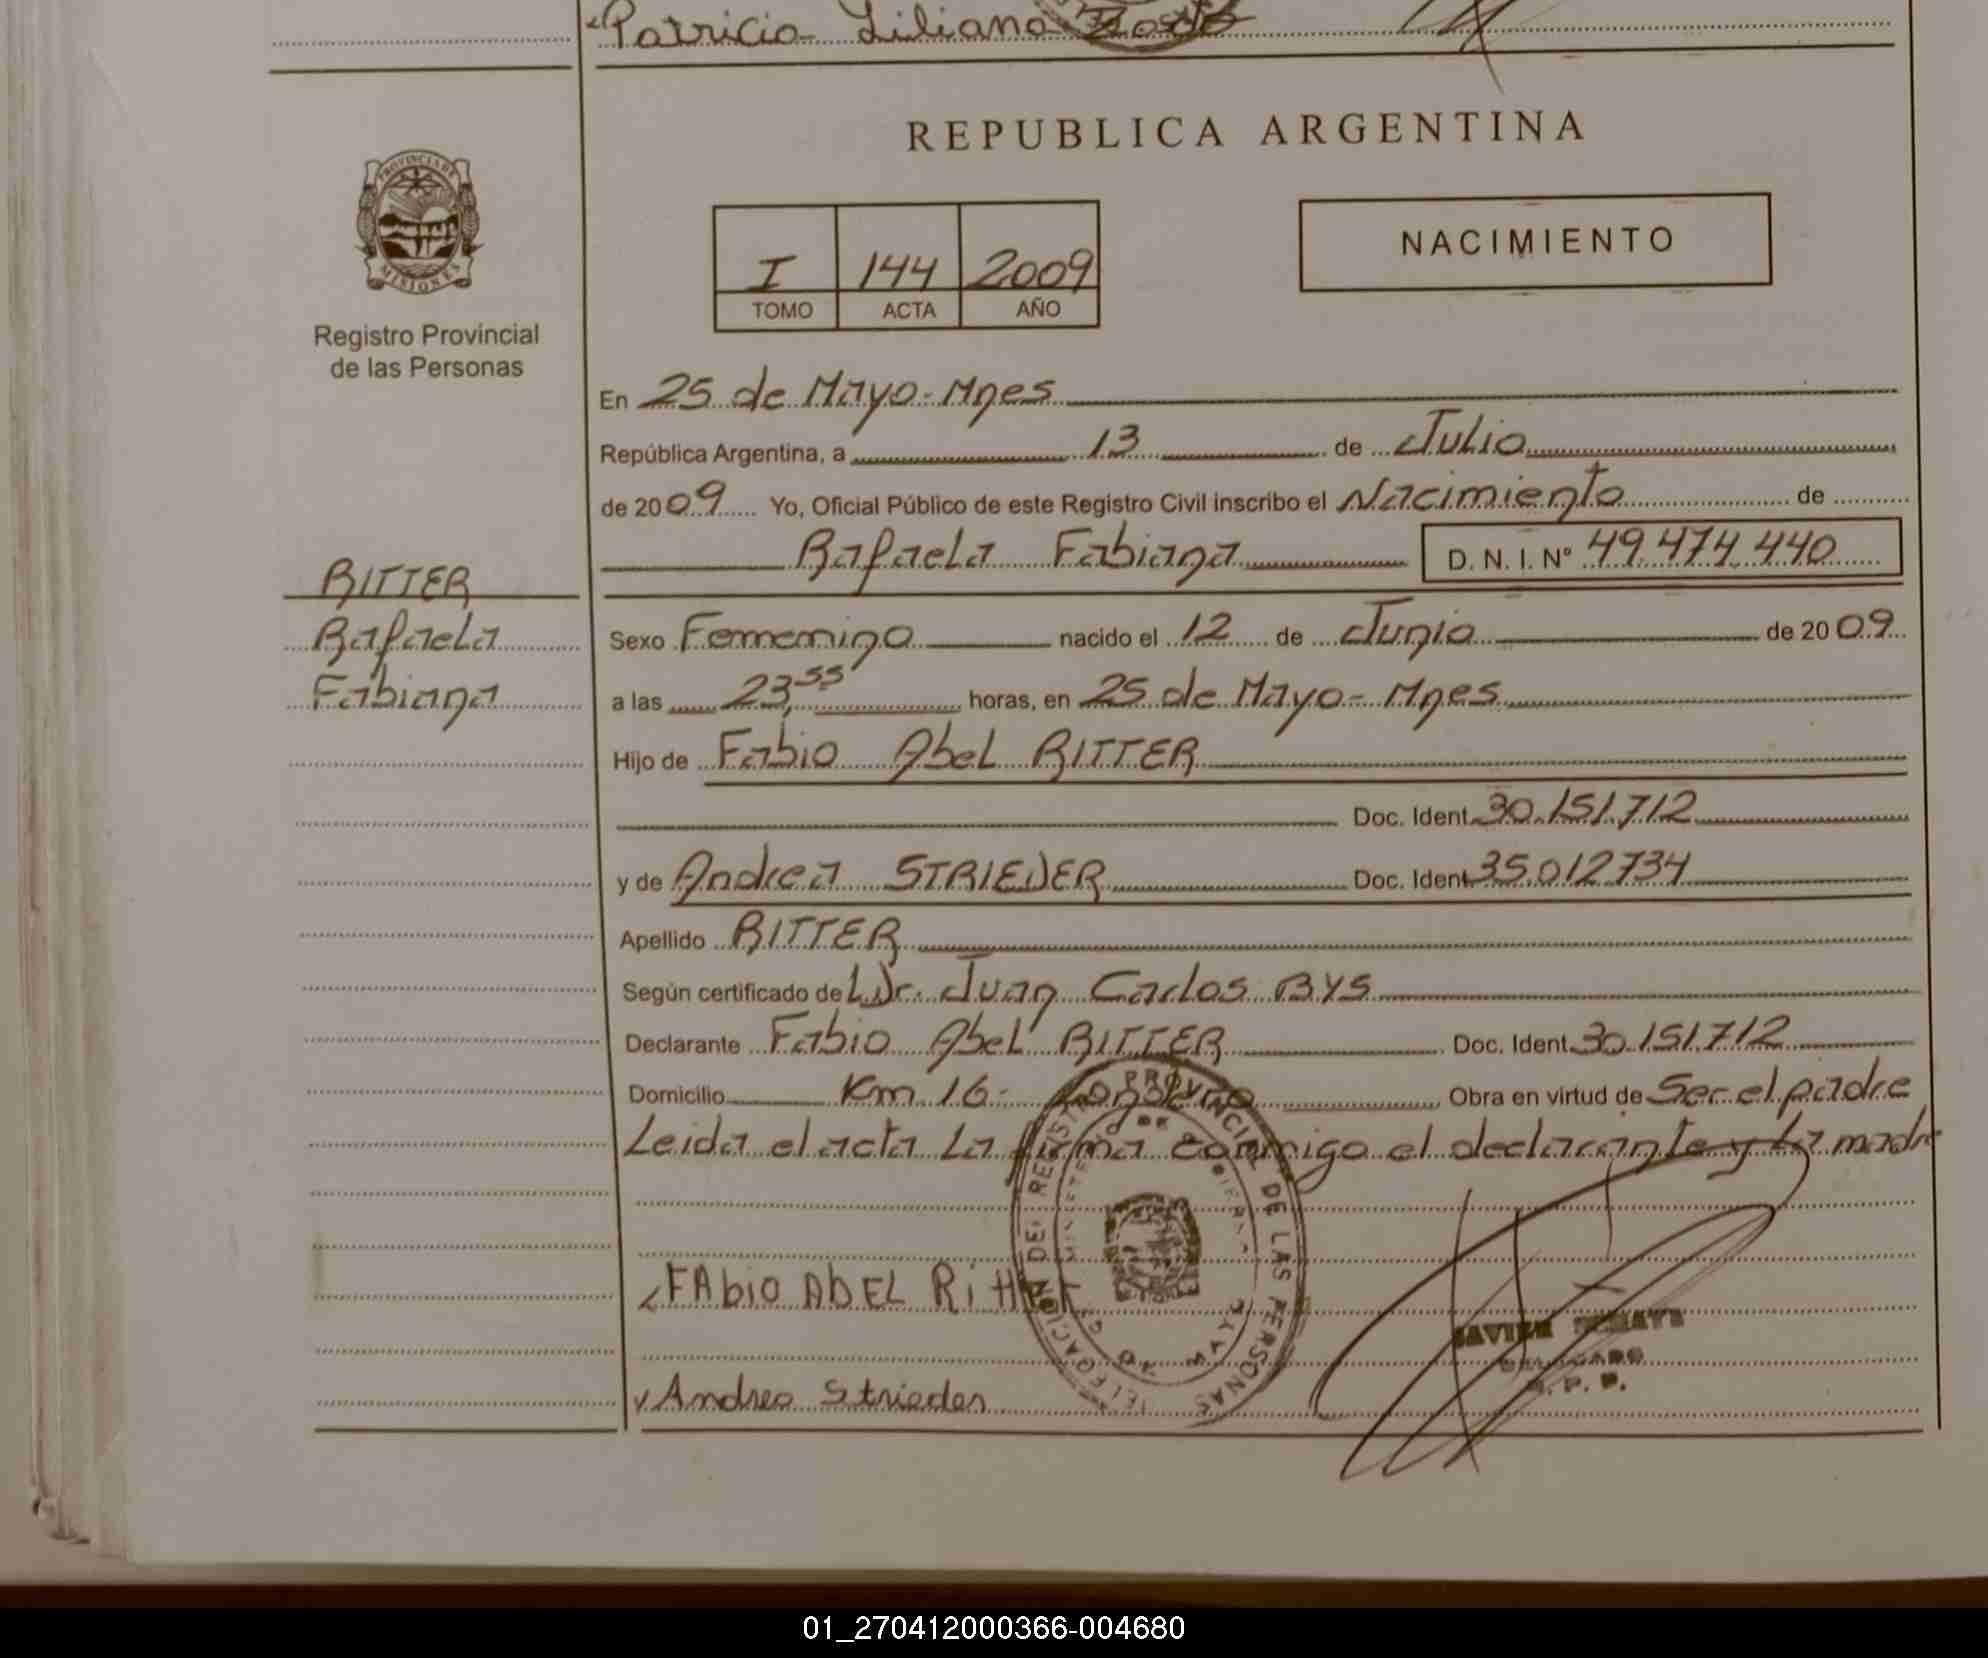 Patricia Liliana
REPUBLICA ARGENTINA
PROVINCIA DE
MISIONES
Registro Provincial
de las Personas
I 144 2009
TOMO ACTA AÑO
NACIMIENTO
En 25 de Mayo-Mnes
República Argentina, a 13 de Julio
de 2009 Yo, Oficial Público de este Registro Civil inscribo el Nacimiento de
Rafaela Fabiana D. N. I. Nº 49.474.440
RITTER
Rafaela
Fabiana
Sexo Femenino nacido el 12 de Junio de 2009
a las 23,55 horas, en 25 de Mayo-Mnes
Hijo de Fabio Abel RITTER
Doc. Ident. 30.151.712
y de Andrea STRIEDER Doc. Ident. 35.012734
Apellido RITTER
Según certificado de Dr. Juan Carlos BYS
Declarante Fabio Abel RITTER Doc. Ident. 30.151.712
Domicilio Km 16- Obra en virtud de Ser el padre
Leida el acta La firma conmigo el declarante y La madre
FAbio AbEL RittER
Andrea Strieder
DELEGACION DEL REGISTRO PROVINCIAL DE LAS PERSONAS
JAVIER
DELEGADO
R. P. P.
01_270412000366-004680